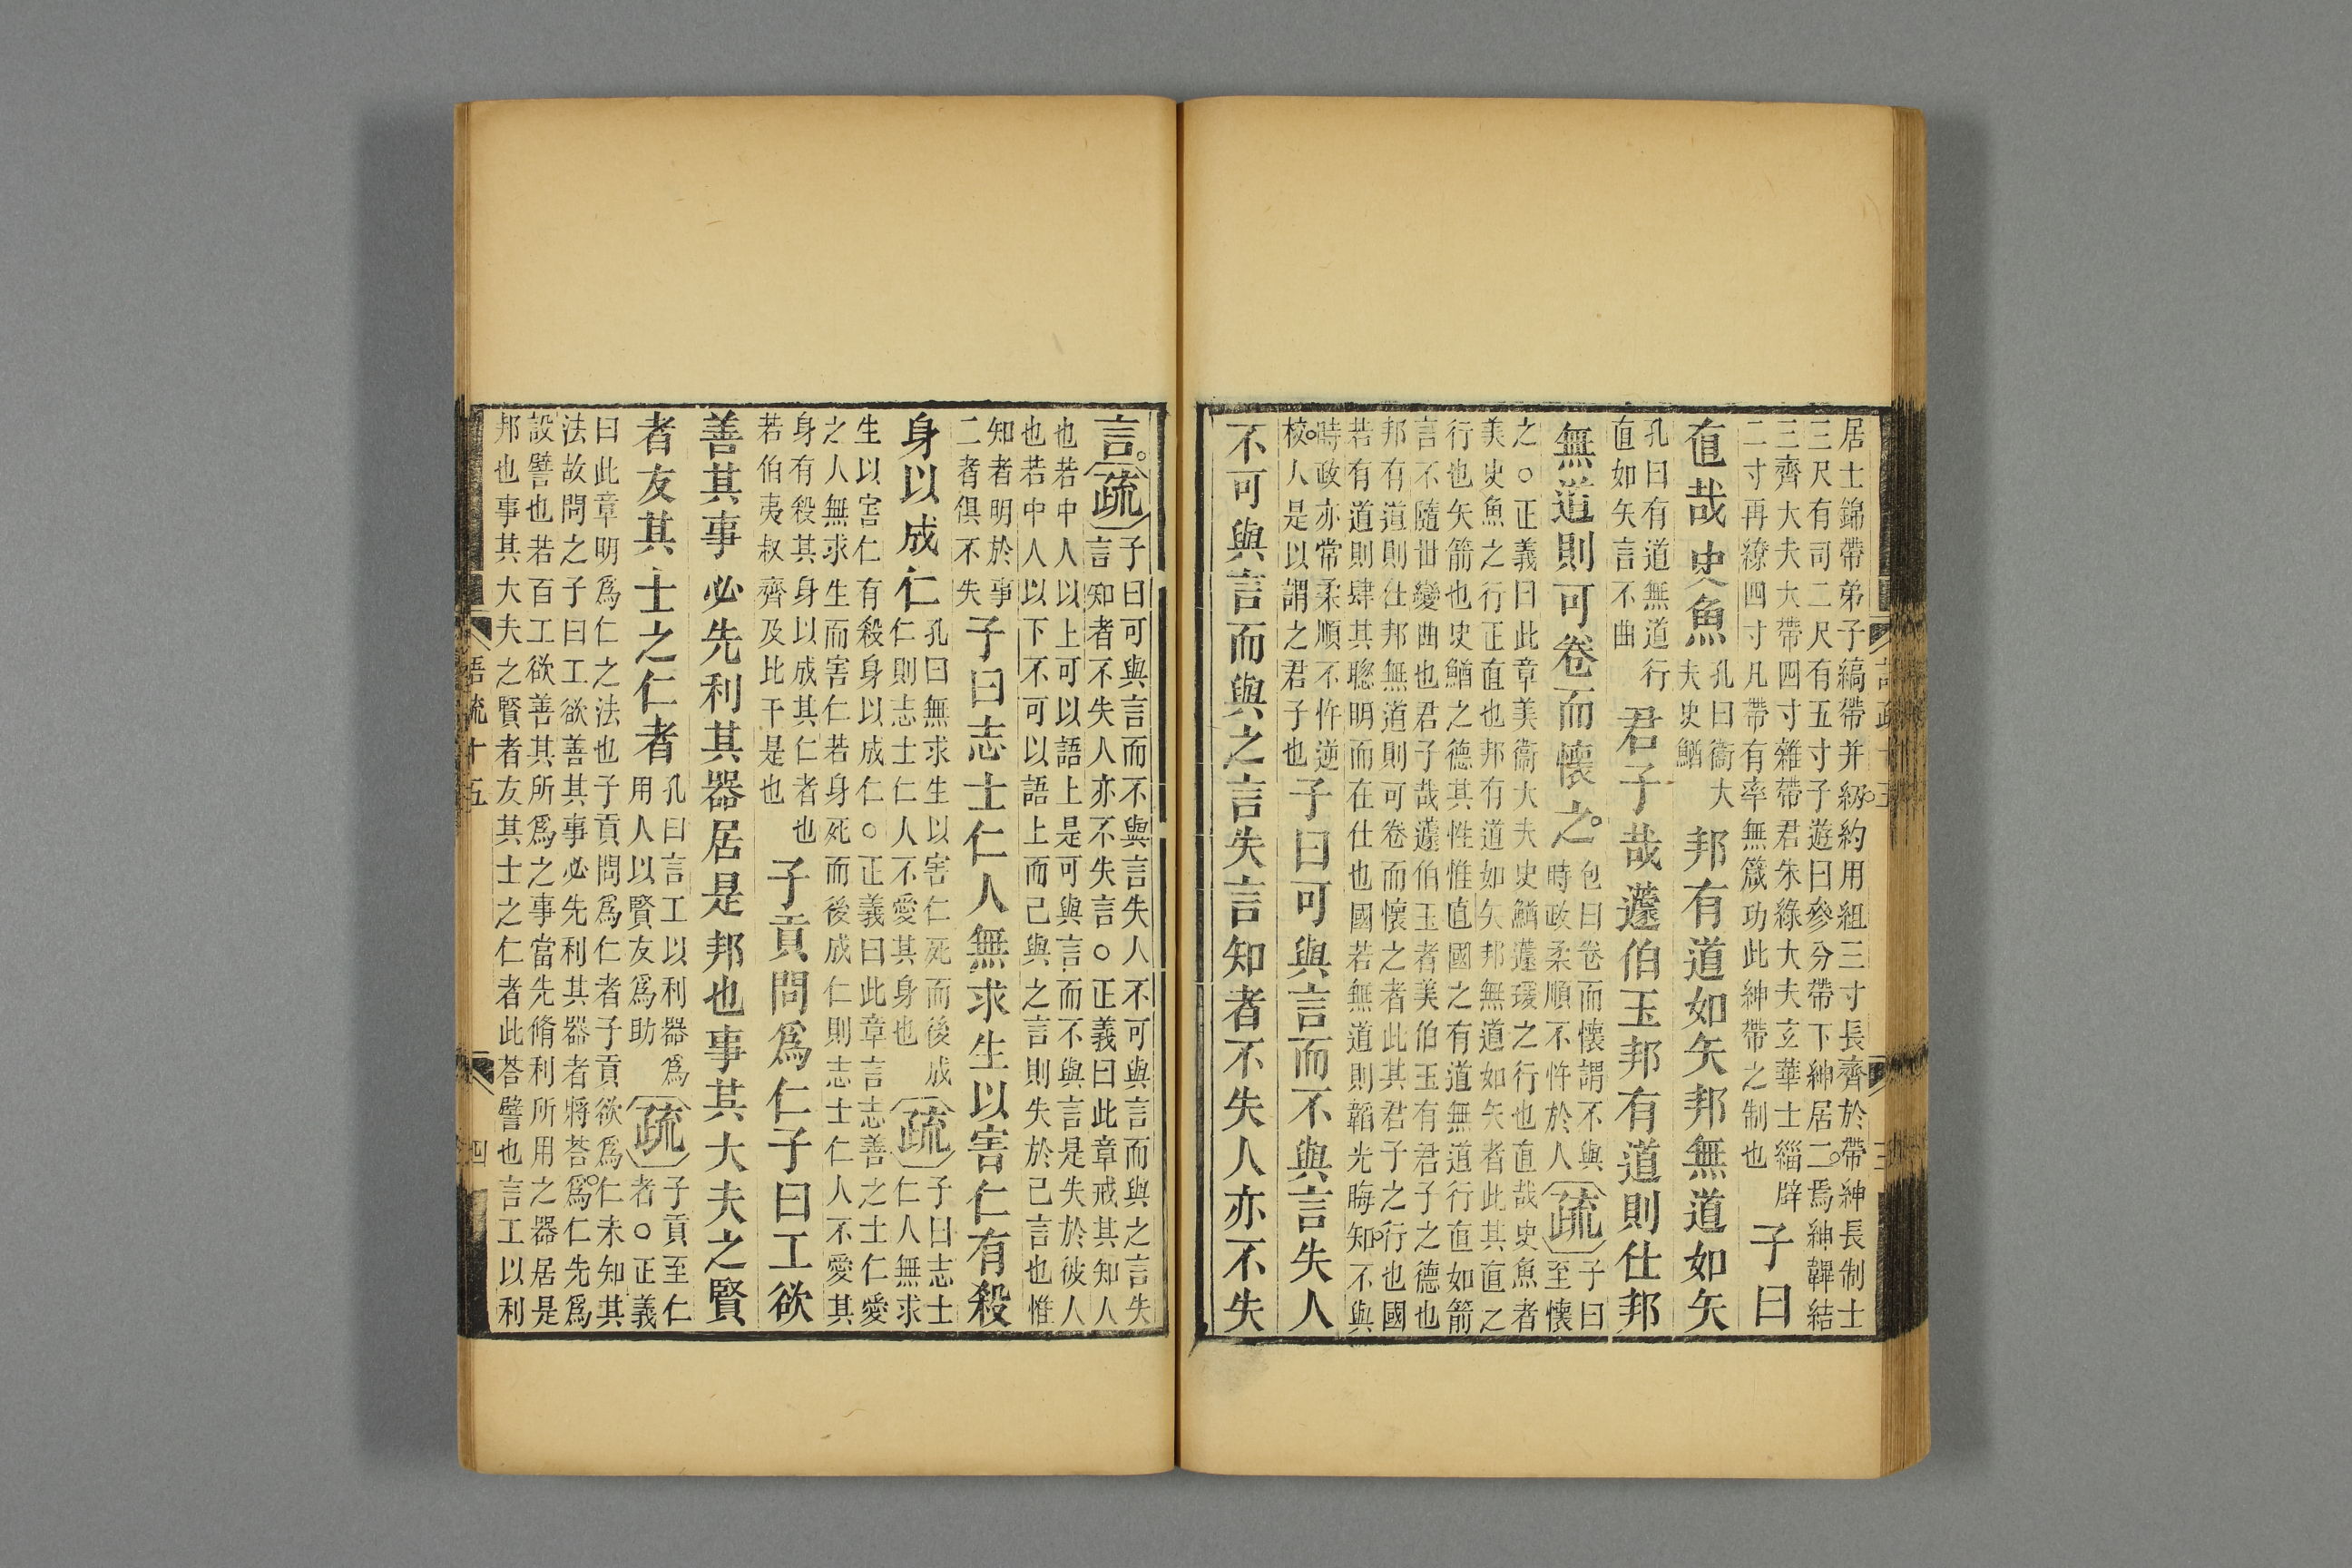 居士錦帶弟子縞帶并紐約用組三寸長齊於帶紳長制士
三尺有司二尺有五寸子遊曰參分帶下紳居二焉紳韠結
三齊大夫大帶四寸雜帶君朱綠大夫玄華士緇辟
二寸再繚四寸凡帶有率無箴功此紳帶之制也
子曰
直哉史魚
孔曰衞大
夫史鰌
邦有道如矢邦無道如矢
孔曰有道無道行
直如矢言不曲
君子哉蘧伯玉邦有道則仕邦
無道則可卷而懷之。
包曰卷而懷謂不與
時政柔順不忤於人
疏
子曰
至懷
之○正義曰此章美衞大夫史鰌蘧瑗之行也直哉史魚者
美史魚之行正直也邦有道如矢邦無道如矢者此其直之
行也矢箭也史鰌之德其性惟直國之有道無道行直如箭
言不隨世變曲也君子哉蘧伯玉者美伯玉有君子之德也
邦有道則仕邦無道則可卷而懷之者此其君子之行也國
若有道則肆其聰明而在仕也國若無道則韜光晦知不與
時政亦常柔順不忤逆
校人是以謂之君子也
子曰可與言而不與言失人
不可與言而與之言失言知者不失人亦不失
言。
疏
子曰可與言而不與言失人不可與言而與之言失
言知者不失人亦不失言○正義曰此章戒其知人
也若中人以上可以語上是可與言而不與言是失於彼人
也若中人以下不可以語上而己與之言則失於己言也惟
知者明於事
二者俱不失
子曰志士仁人無求生以害仁有殺
身以成仁
孔曰無求生以害仁死而後成
仁則志士仁人不愛其身也
疏
子曰志士
仁人無求
生以害仁有殺身以成仁○正義曰此章言志善之士仁愛
之人無求生而害仁若身死而後成仁則志士仁人不愛其
身有殺其身以成其仁者也
若伯夷叔齊及比干是也
子貢問爲仁子曰工欲
善其事必先利其器居是邦也事其大夫之賢
者友其士之仁者
孔曰言工以利器爲
用人以賢友爲助
疏
子貢至仁
者○正義
曰此章明爲仁之法也子貢問爲仁者子貢欲爲仁未知其
法故問之子曰工欲善其事必先利其器者將荅爲仁先爲
設譬也若百工欲善其所爲之事當先脩利所用之器居是
邦也事其大夫之賢者友其士之仁者此荅譬也言工以利
語疏十五
四